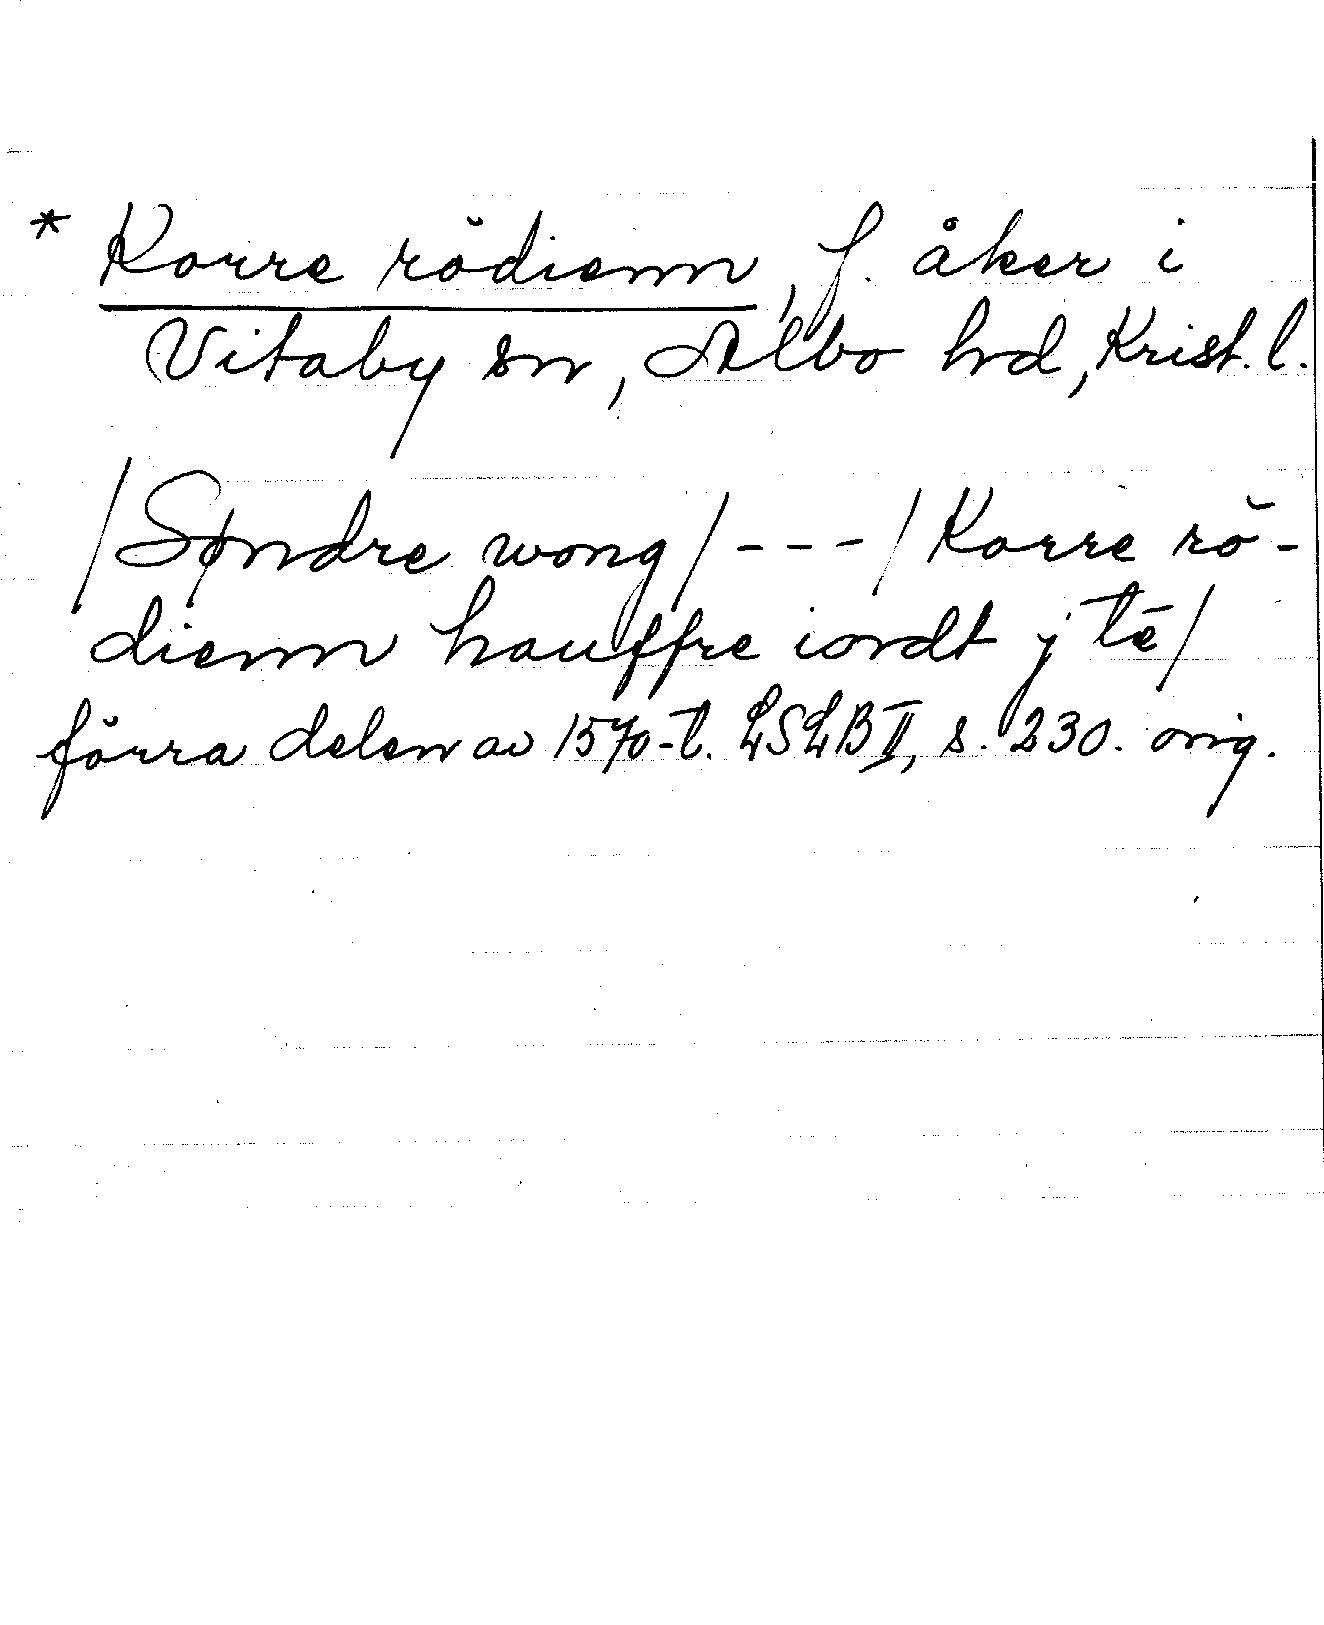 * Korre rödienn, f. åker i
Vitaby sn, Albo hd, Krist. l.
/Søndre wong/---/Korre rö-
dienn hauffre iordt j tē/
förra delen av 1570-t. LSLB II, s. 230. orig.